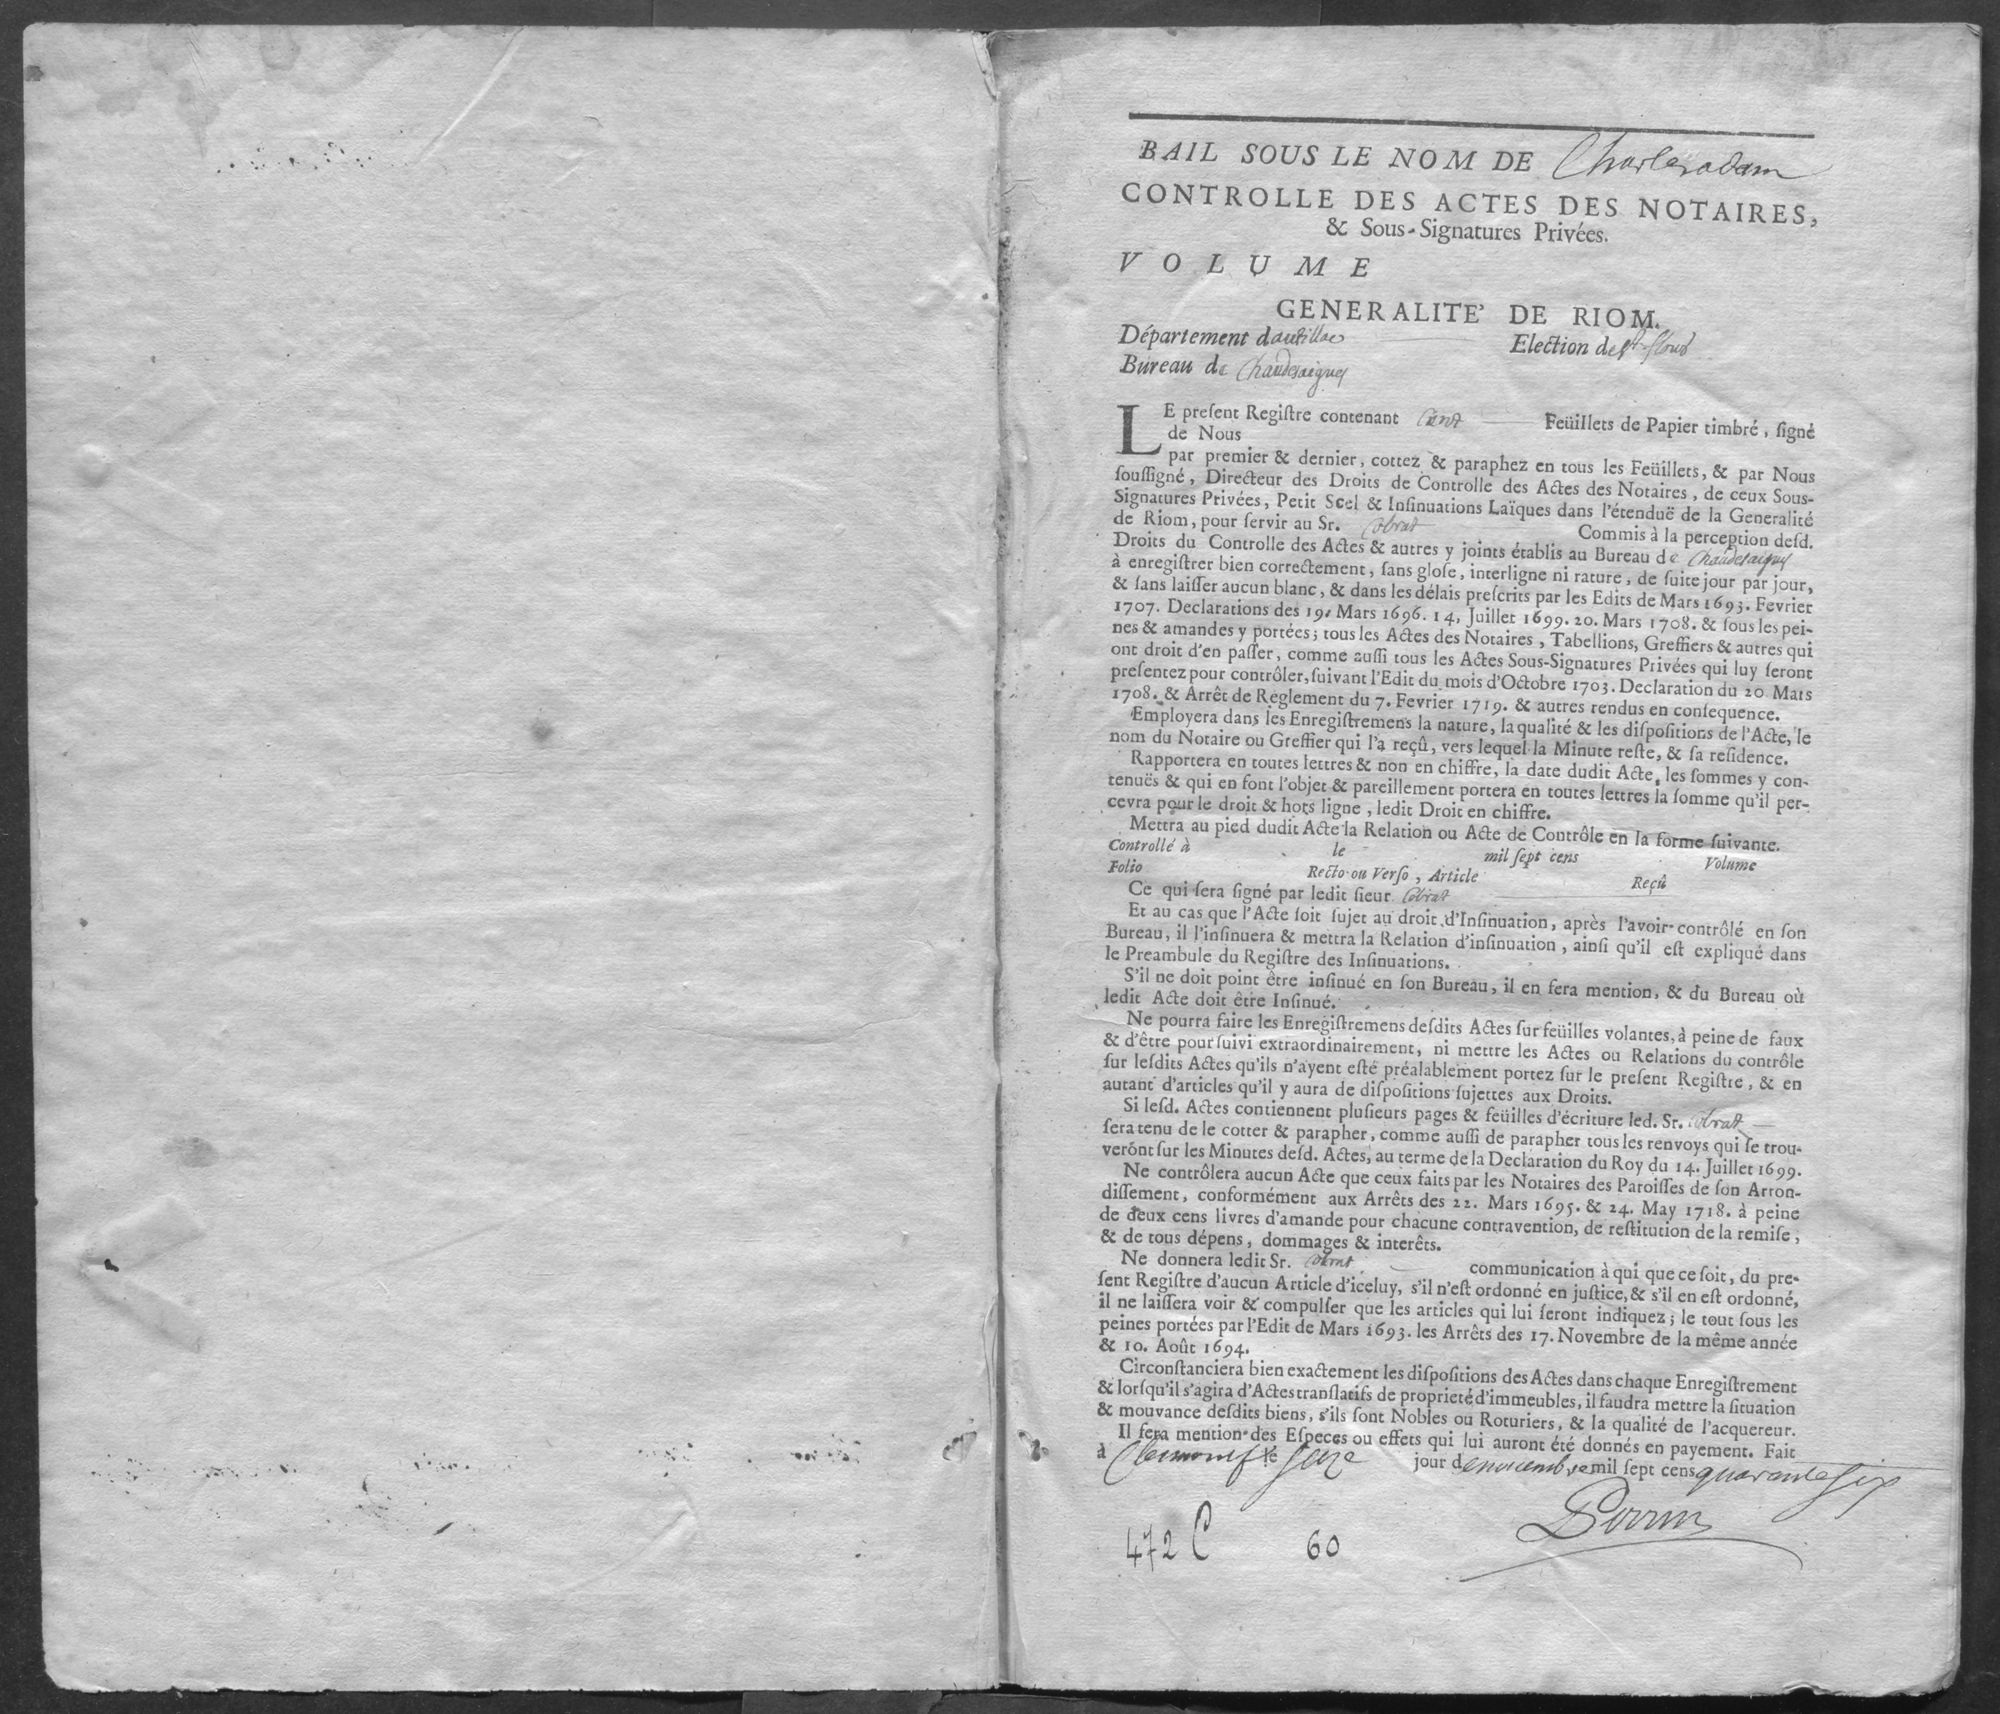 BAIL SOUS LE NOM DE Charles adam
CONTROLLE DES ACTES DES NOTAIRES,
& Sous-Signatures Privées.
VOLUME
GENERALITE' DE RIOM.
Département daurillac Election de St flour
Bureau de Chaudesaigues
LE preſent Regiſtre contenant Cent Feüillets de Papier timbré, ſigné
de Nous
par premier & dernier, cottez & paraphez en tous les Feüillets, & par Nous
ſouſſigné, Directeur des Droits de Controlle des Actes des Notaires, de ceux Sous-
Signatures Privées, Petit Scel & Inſinuations Laïques dans l'étenduë de la Generalité
de Riom, pour ſervir au Sr. Obrat Commis à la perception deſd.
Droits du Controlle des Actes & autres y joints établis au Bureau de Chaudesaigues
à enregiſtrer bien correctement, ſans gloſe, interligne ni rature, de ſuite jour par jour,
& ſans laiſſer aucun blanc, & dans les délais preſcrits par les Edits de Mars 1693. Fevrier
1707. Declarations des 19. Mars 1696. 14. Juillet 1699. 20. Mars 1708. & ſous les pei-
nes & amandes y portées; tous les Actes des Notaires, Tabellions, Greffiers & autres qui
ont droit d'en paſſer, comme auſſi tous les Actes Sous-Signatures Privées qui luy ſeront
preſentez pour contrôler, ſuivant l'Edit du mois d'Octobre 1703. Declaration du 20 Mars
1708. & Arrêt de Reglement du 7. Fevrier 1719. & autres rendus en conſequence.
Employera dans les Enregiſtremens la nature, la qualité & les diſpoſitions de l'Acte, le
nom du Notaire ou Greffier qui l'a reçû, vers lequel la Minute reſte, & ſa reſidence.
Rapportera en toutes lettres & non en chiffre, la date dudit Acte, les ſommes y con-
tenuës & qui en font l'objet & pareillement portera en toutes lettres la ſomme qu'il per-
cevra pour le droit & hors ligne, ledit Droit en chiffre.
Mettra au pied dudit Acte la Relation ou Acte de Contrôle en la forme ſuivante.
Controllé à le mil ſept cens Volume
Folio Recto ou Verſo, Article Reçû
Ce qui ſera ſigné par ledit ſieur Obrat
Et au cas que l'Acte ſoit ſujet au droit d'Inſinuation, après l'avoir contrôlé en ſon
Bureau, il l'inſinuera & mettra la Relation d'inſinuation, ainſi qu'il eſt expliqué dans
le Preambule du Regiſtre des Inſinuations.
S'il ne doit point être inſinué en ſon Bureau, il en ſera mention, & du Bureau où
ledit Acte doit être Inſinué.
Ne pourra faire les Enregiſtremens deſdits Actes ſur feüilles volantes, à peine de faux
& d'être pourſuivi extraordinairement, ni mettre les Actes ou Relations du contrôle
ſur leſdits Actes qu'ils n'ayent eſté préalablement portez ſur le preſent Regiſtre, & en
autant d'articles qu'il y aura de diſpoſitions ſujettes aux Droits.
Si leſd. Actes contiennent pluſieurs pages & feüilles d'écriture led. Sr. Obrat
ſera tenu de le cotter & parapher, comme auſſi de parapher tous les renvoys qui ſe trou-
veront ſur les Minutes deſd. Actes, au terme de la Declaration du Roy du 14. Juillet 1699.
Ne contrôlera aucun Acte que ceux faits par les Notaires des Paroiſſes de ſon Arron-
diſſement, conformément aux Arrêts des 22. Mars 1695. & 24. May 1718. à peine
de deux cens livres d'amande pour chacune contravention, de reſtitution de la remiſe,
& de tous dépens, dommages & interêts.
Ne donnera ledit Sr. Obrat communication à qui que ce ſoit, du pre-
ſent Regiſtre d'aucun Article d'iceluy, s'il n'eſt ordonné en juſtice, & s'il en eſt ordonné,
il ne laiſſera voir & compulſer que les articles qui lui ſeront indiquez; le tout ſous les
peines portées par l'Edit de Mars 1693. les Arrêts des 17. Novembre de la même année
& 10. Août 1694.
Circonſtanciera bien exactement les diſpoſitions des Actes dans chaque Enregiſtrement
& lorſqu'il s'agira d'Actes tranſlatifs de proprieté d'immeubles, il faudra mettre la ſituation
& mouvance deſdits biens, s'ils ſont Nobles ou Roturiers, & la qualité de l'acquereur.
Il ſera mention des Eſpeces ou effets qui lui auront été donnés en payement. Fait
à Clermont le seize jour de novembre mil ſept cens quarante six
Perrin
472 C 60